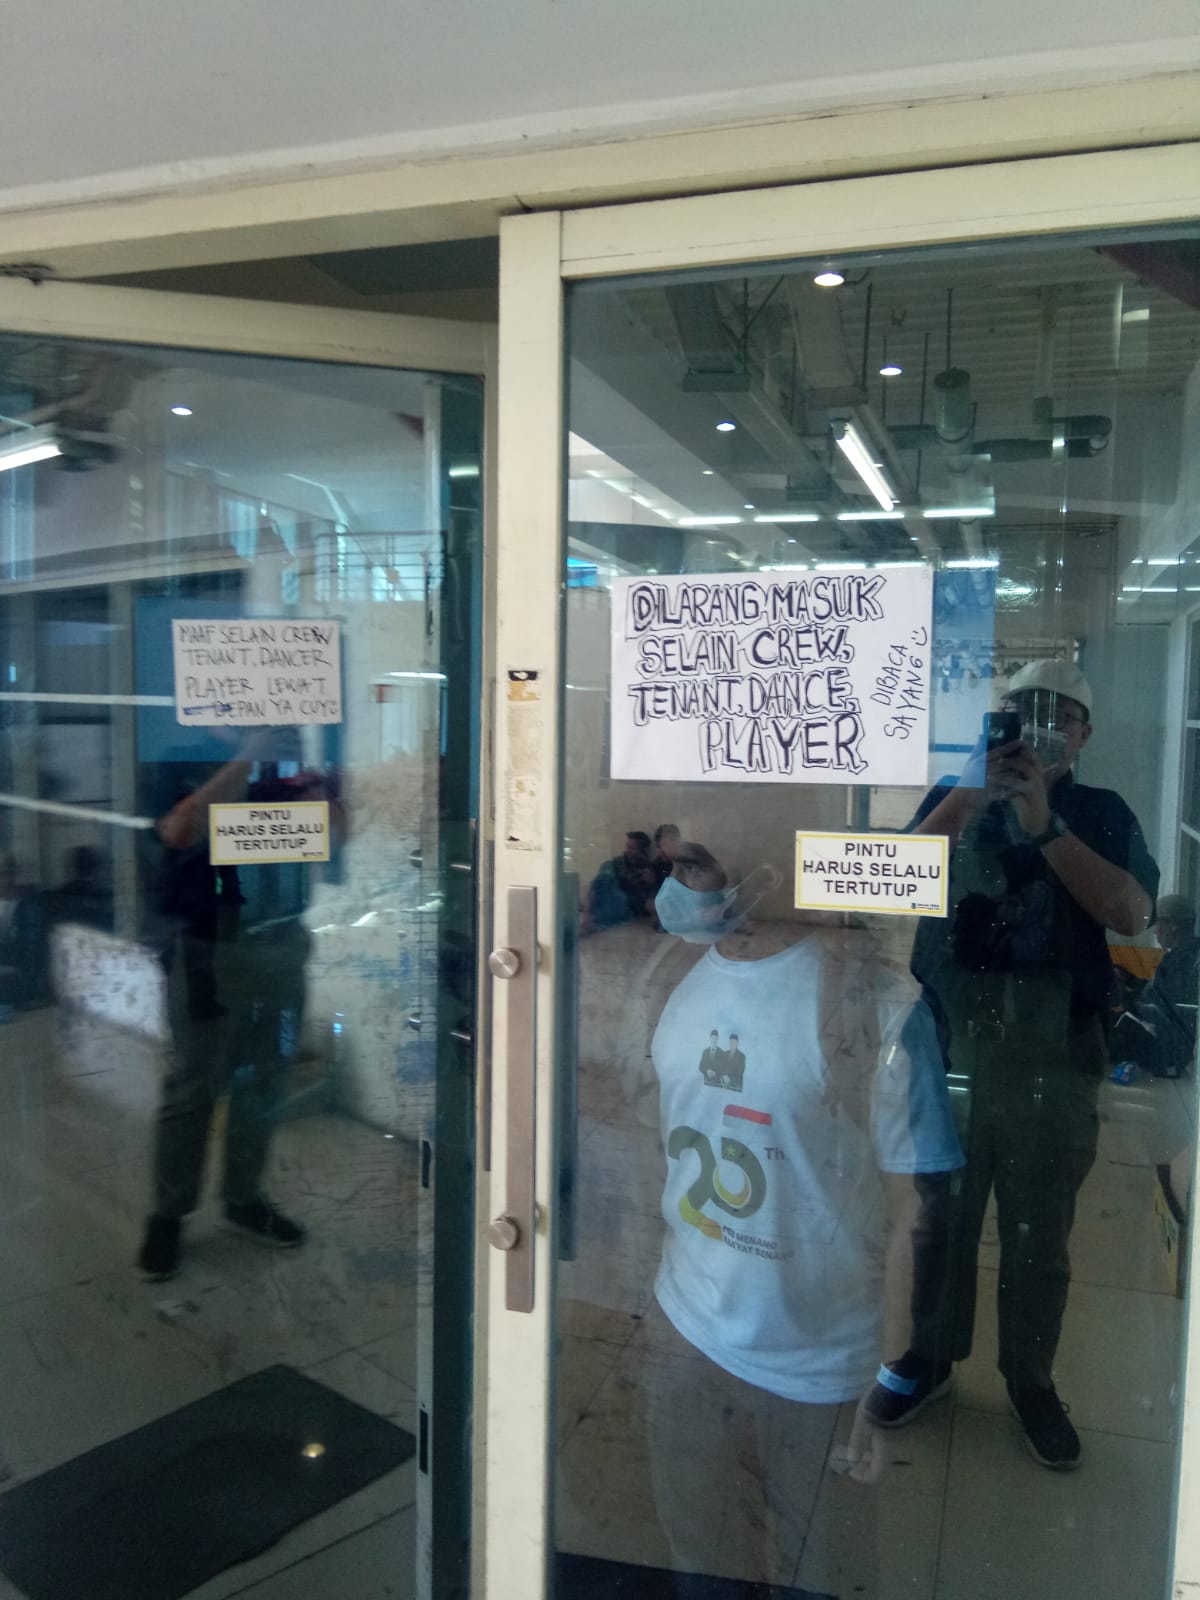 MAAF SELAIN CREW
TENANT, DANCER,
PLAYER LEWAT
DEPAN YA CUY
PINTU
HARUS SELALU
TERTUTUP
DILARANG MASUK
SELAIN CREW,
TENANT, DANCE,
PLAYER
DIBACA
SAYANG
PINTU
HARUS SELALU
TERTUTUP
25 Th
MENANG
RAKYAT SENANG